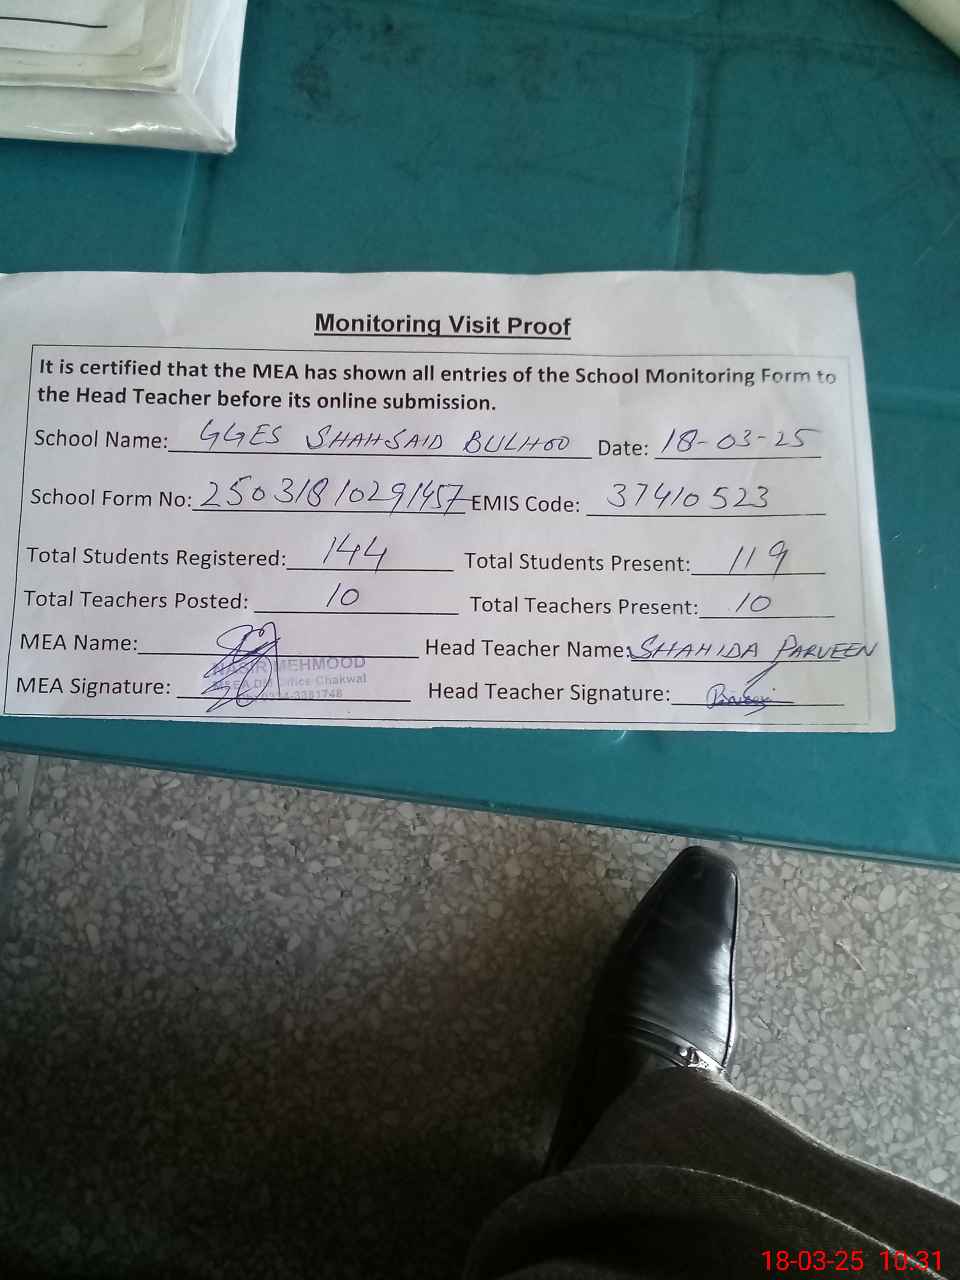 Monitoring Visit Proof
It is certified that the MEA has shown all entries of the School Monitoring Form to
the Head Teacher before its online submission.
School Name: GGES SHAHSAID BULHOO Date: 18-03-25
School Form No: 25031810291457 EMIS Code: 37410523
Total Students Registered: 144 Total Students Present: 119
Total Teachers Posted: 10 Total Teachers Present: 10
MEA Name: Head Teacher Name: SHAHIDA PARVEEN
NASIR MEHMOOD
Office Chakwal
MEA Signature: Head Teacher Signature:
18-03-25 10:31